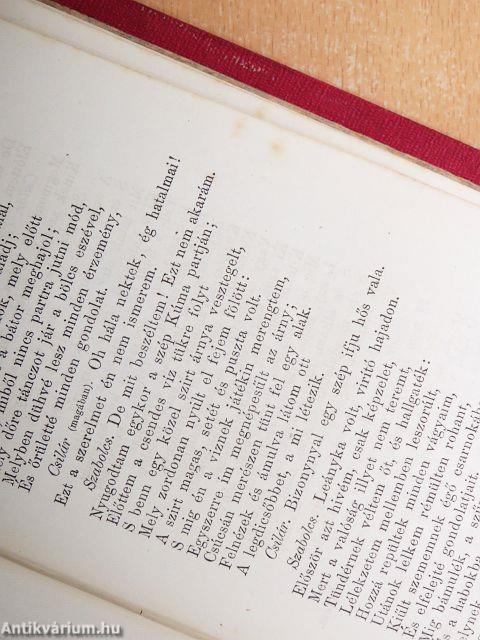 a bátor meghajol;
nincs partra jutni mód,
Mely dőre tánczot jár a bölcs eszével,
Melyben dühvé lesz minden érzemény,
És őrületté minden gondolat.
Csilár (magában). Oh hála nektek, ég hatalmai!
Ezt a szerelmet én nem ismerem.
Szabolcs. De mit beszélem! Ezt nem akarám.
Nyugoltam egykor a szép Kúma partján;
Előttem a csendes víz tükre folyt
S benn egy közel szirt árnya vesztegelt,
Mely zordonan nyúlt el fejem fölött:
A szirt magas, setét, és puszta volt.
S míg én a víznek játékin merengtem,
Egyszerre im megnépesült az árny;
Csúcsán merészen tünt fel egy alak,
Felnézek és ámulva látom ott
A legdicsőbbet, a mi létezik
Csilár. Bizonynyal egy szép ifju hős vala.
Szabolcs. Leányka volt, viritó hajadon.
Először azt hivém, csak képzelet,
Mert a valóság illyet nem teremt,
Tündérnek véltem őt, és hallgaték:
Lélekzetem mellemben leszorült,
Hozzá repültek minden vágyaim,
Utánok lelkem rémülten rohant,
Kiült szememnek égő csarnokába
És elfelejté gondolatjait
bámulék, a
a habokba
Antikvárium.hu